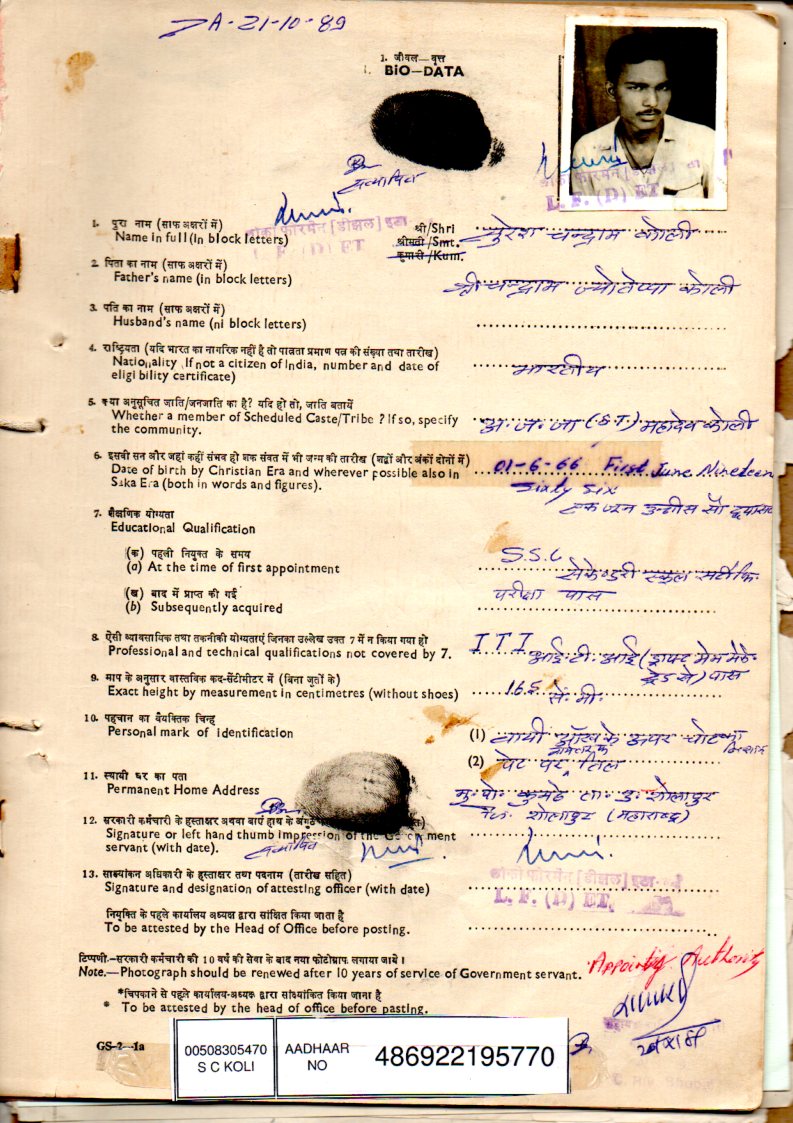 DA-21-10-89
1. जीवन—वृत्त
1. BiO—DATA
सत्यापित
लोको फोरमैन [डीज़ल] इटा
L. F. (D) ET
लोको फोरमैन [डीज़ल] इटा
L. F. (D) ET
1. पुरा नाम (साफ अक्षरों में) श्री/Shri
Name in full (in block letters) श्रीमती/Smt. सुरेश चन्द्राम कोली
कुमारी/Kum.
2. पिता का नाम (साफ अक्षरों में)
Father's name (in block letters) श्री चन्द्राम ज्योतेप्पा कोली
3. पति का नाम (साफ अक्षरों में)
Husband's name (ni block letters)
4. राष्ट्रियता (यदि भारत का नागरिक नहीं है तो पात्रता प्रमाण पत्र की संख्या तथा तारीख)
Nationality (If not a citizen of India, number and date of भारतीय
eligi bility certificate)
5. क्या अनुसूचित जाति/जनजाति का है? यदि हो तो, जाति बतायें
Whether a member of Scheduled Caste/Tribe ? If so, specify अ. ज. जा (S.T.) महादेव कोली
the community.
6. इसवी सन और जहां कहीं संभव हो शक संवत में भी जन्म की तारीख (शब्दों और अंकों दोनों में)
Date of birth by Christian Era and wherever possible also in 01-6-66 First June Nineteen
Saka Era (both in words and figures). Sixty Six
एक जून उन्नीस सौ
7. शैक्षणिक योग्यता
Educational Qualification
(क) पहली नियुक्त के समय S.S.C
(a) At the time of first appointment सेकेण्डरी स्कूल सर्टीफि.
(ख) बाद में प्राप्त की गई परीक्षा पास
(b) Subsequently acquired
8. ऐसी व्यावसायिक तथा तकनीकी योग्यताएं जिनका उल्लेख उक्त 7 में न किया गया हो ITI
Professional and technical qualifications not covered by 7. आई. टी. आई (ड्राफ्ट मेन मेके.
ट्रेड से) पास
9. माप के अनुसार वास्तविक कद-सेंटीमीटर में (बिना जुतों के)
Exact height by measurement in centimetres (without shoes) 165 से. मी.
10. पहचान का वैयक्तिक चिन्ह (1) बायी आँख के ऊपर चोट का निशान
Personal mark of identification
(2) पेट पर तिल
11. स्थायी घर का पता
Permanent Home Address मु. पो. कुमठे ता. उ. सोलापुर
जि. सोलापुर (महाराष्ट्र)
12. सरकारी कर्मचारी के हुस्ताक्षर अथवा बाएं हाथ के अंगुठे
Signature or left hand thumb impression of the Government
servant (with date). सत्यापित
13. साक्ष्यांकन अधिकारी के हुस्ताक्षर तथा पदनाम (तारीख सहित)
Signature and designation of attesting officer (with date)
लोको फोरमैन [डीज़ल] इटा
L. F. (D) ET.
नियुक्ति के पहले कार्यालय अध्यक्ष द्वारा सांक्षित किया जाता है
To be attested by the Head of Office before posting.
टिप्पणी.—सरकारी कर्मचारी की 10 वर्ष की सेवा के बाद नया फोटोग्राफ लगाया जावे।
Note.—Photograph should be renewed after 10 years of service of Government servant.
Appointig Authority
*चिपकाने से पहले कार्यालय-अध्यक्ष द्वारा सांक्ष्यांकित किया जाना है
* To be attested by the head of office before pasting.
GS-2—1a
00508305470
S C KOLI
AADHAAR
NO
486922195770